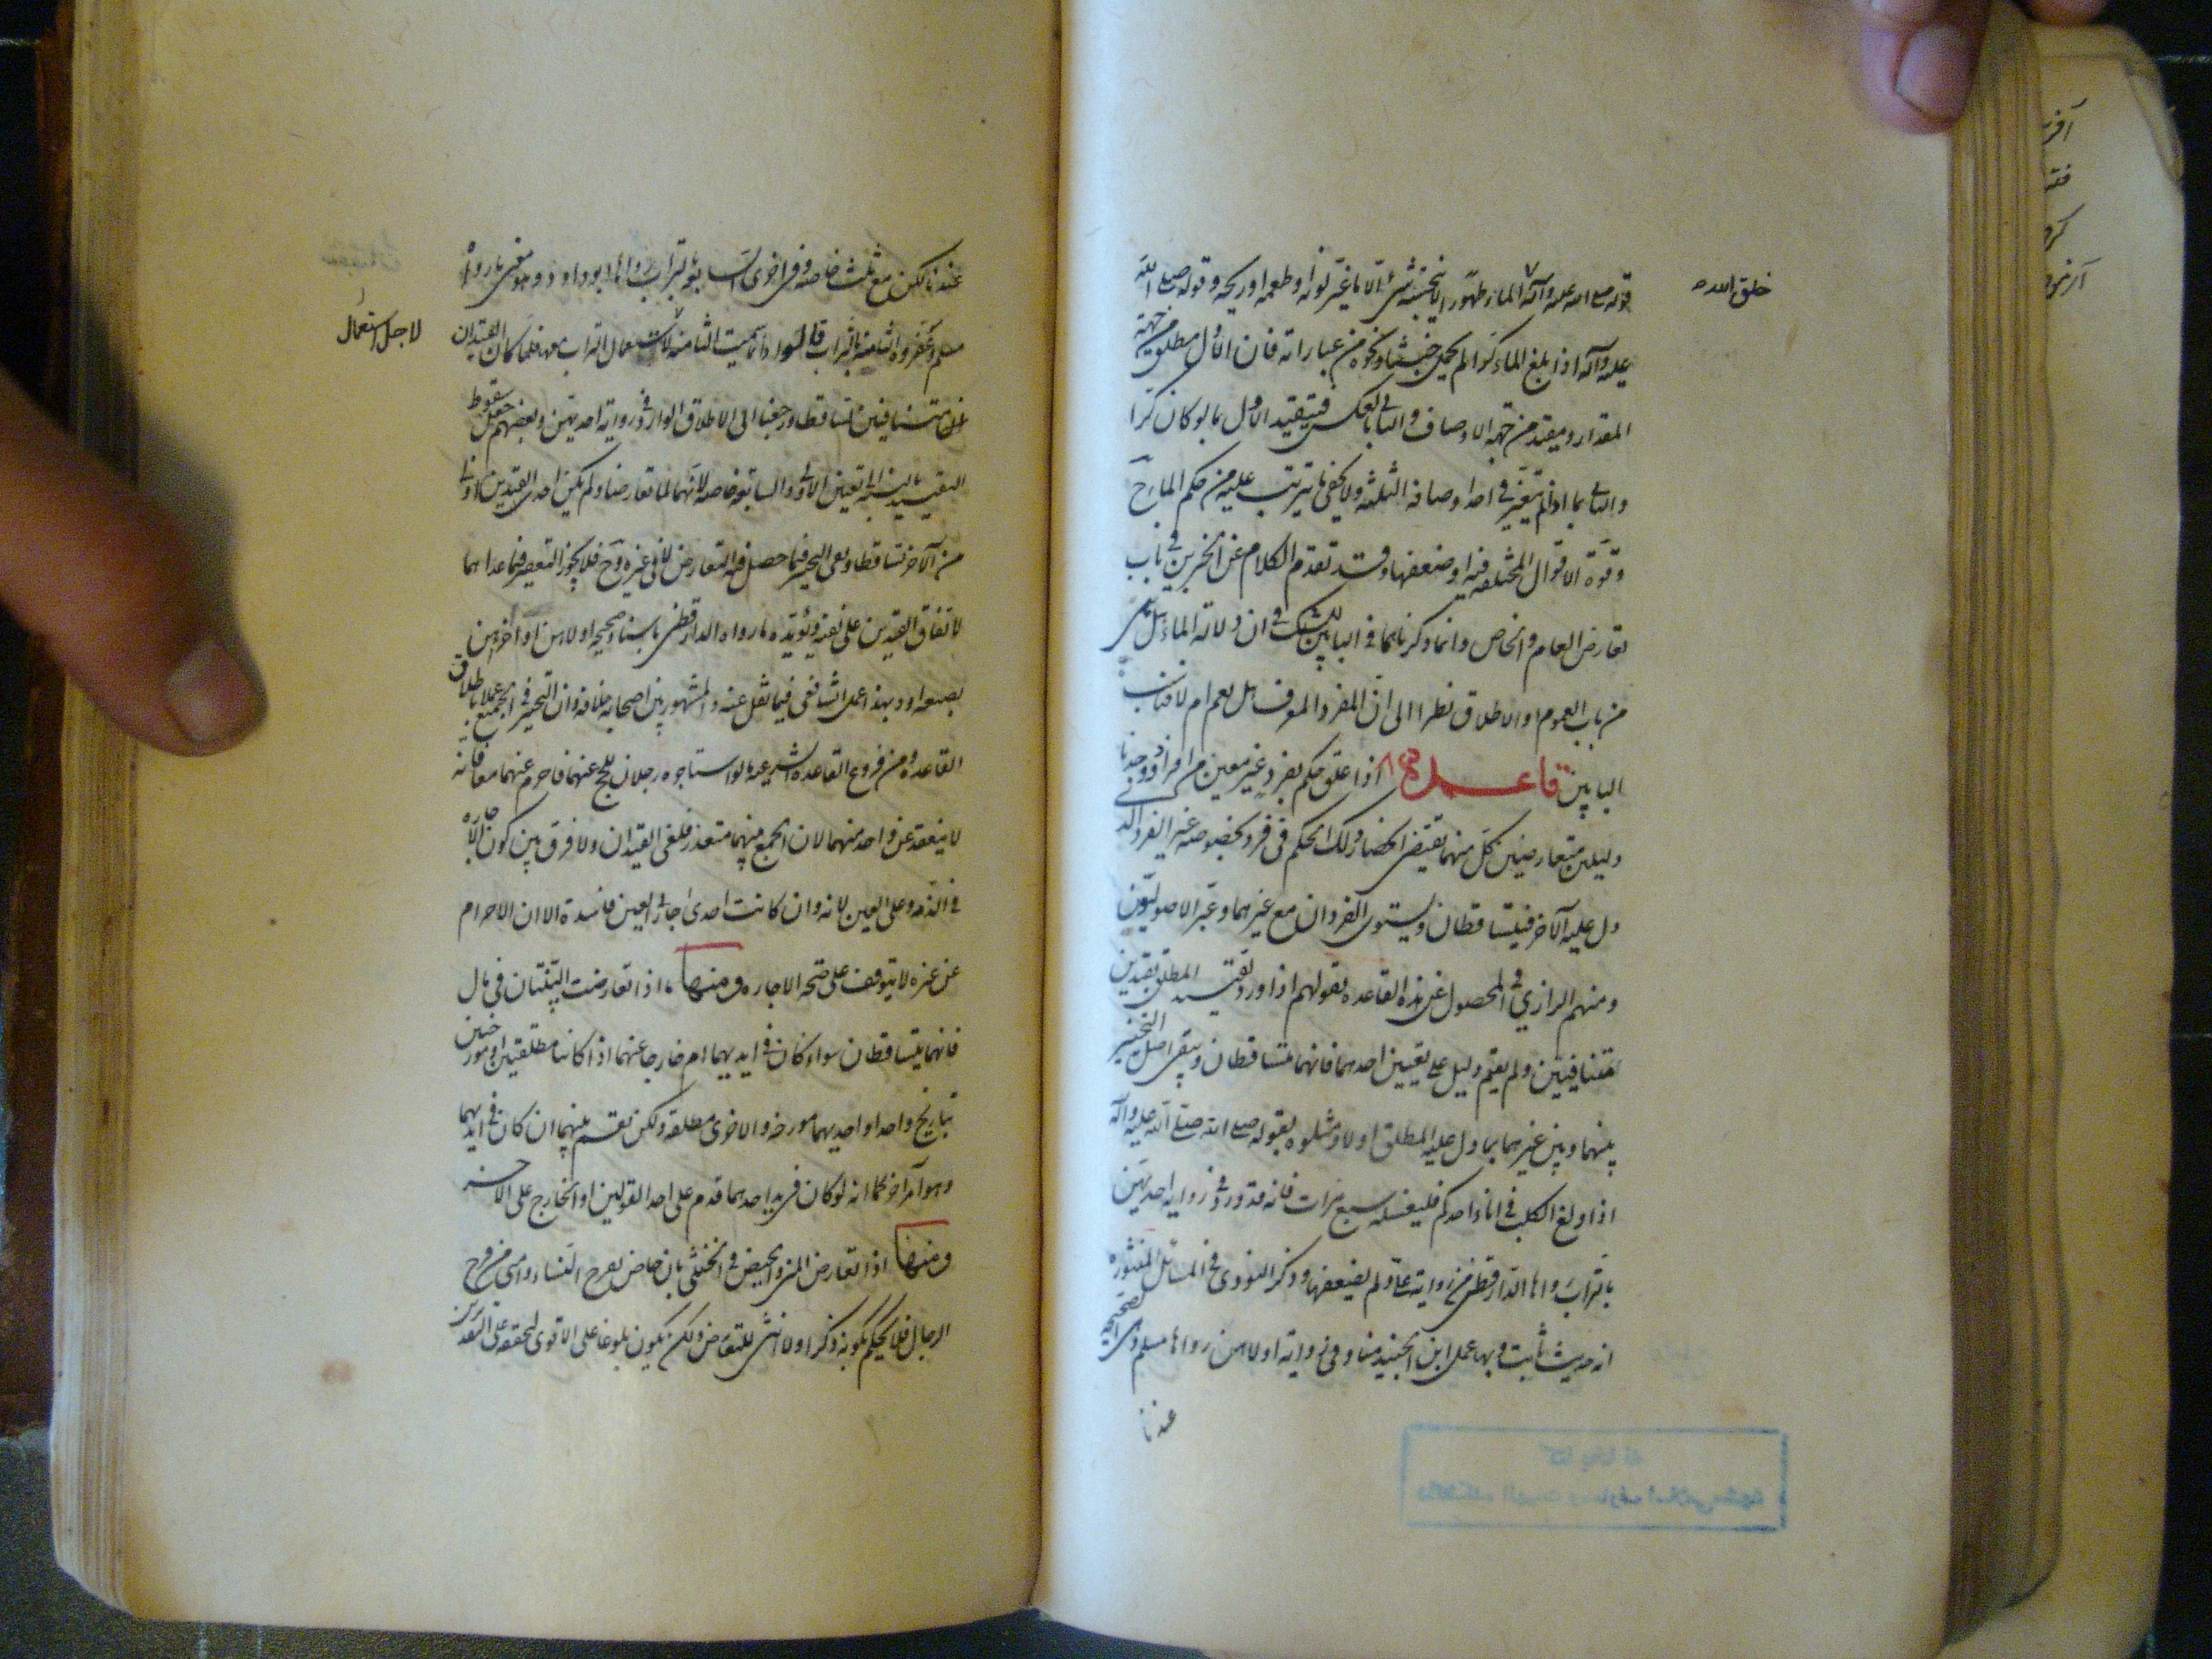 خلق الله
قوله صلى الله عليه وآله الماء طهورا لا ينجسه شئ الا ما غير لونه او طعمه او ريحه وقوله صلى الله
عليه وآله اذا بلغ الماء كرا لم يحمل خبثا ونحوه من عباراته فان الاول مطلق من جهة
المقدار ومقيد من جهة الاوصاف والثانى بالعكس فيتقيد الاول بما لو كان كرا
والثانى بما اذا لم يتغير فى احد اوصافه الثلثه ولا يخفى ما يترتب عليه من حكم الماء ح
وقوة الاقوال المختلفه فيه او ضعفها وقد تقدم الكلام عن الخبرين فى باب
تعارض العام والخاص وانما ذكرناهما فى البابين للشك فى ان دلالة الماء هل هى
من باب العموم او الاطلاق نظرا الى ان المفرد المعرف هل يعم ام لا فناسب
البابين قاعدة اذا علق حكم بفرد غير معين من افراد ووجدنا
دليلين متعارضين كل منهما يقتضى انحصار ذلك الحكم فى فرد بخصوصه غير الفرد الذى
دل عليه الآخر فيتساقطان ويستوى الفردان مع غيرهما وعبر الاصوليون
ومنهم الرازي فى المحصول عن هذه القاعدة بقولهم اذا ورد تقييد المطلق بقيدين
متنافيين ولم يقم دليل على تعيين احدهما فانهما يتساقطان ويبقى اصل التخيير
بينهما وبين غيرهما بما دل عليه المطلق اولا ومثلوه بقوله صلى الله صلى الله عليه وآله
اذا ولغ الكلب فى اناء احدكم فليغسله سبع مرات فانه قد ورد فى رواية احديهن
بالتراب رواها الدارقطنى من رواية على ولم يضعفها وذكر النووى فى المسائل المنثوره
انه حديث ثابت وبها عمل ابن الجنيد منا وفى رواية اولاهن رواها مسلم وهى الصحيحة
عندنا
عندنا لكن مع ثلث خاصه وفى اخرى السابعة بالتراب رواها ابو داود وهو معنى ما رواه
مسلم وعفروه الثامنة بالتراب قالوا وانما سميت الثامنة لاستعمال التراب معها فلما كان القيدان
لاجل استعمال
متنافيين تساقطا ورجعنا الى الاطلاق الوارد فى رواية احديهن وبعضهم جعل سقوط
التقييد بالنسبة الى تعيين الاولى والسابعة خاصه لانهما لما تعارضا ولم يكن احد القيدين اولى
من الآخر تساقطا وبقى التخيير فيما حصل فيه التعارض لا فى غيره وح فلا يجوز التعفير فيما عداهما
لاتفاق القيدين على نفيه ويؤيده ما رواه الدارقطنى باسناد صحيح اولاهن او اخراهن
بصيغة او وبهذا عمل الشافعى فيما نقل عنه والمشهور بين اصحابه خلافه وان التخيير فى الجميع عملا باطلاق
القاعدة ومن فروع القاعدة الشرعية ما لو استاجره رجلان للحج عنهما فاحرم عنهما معا فانه
لا ينعقد عن واحد منهما لان الجمع بينهما متعذر فلغى القيدان ولا فرق بين كون الاجارة
فى الذمه وعلى العين لانه وان كانت احدى اجارتى العين فاسدة الا ان الاحرام
عن غيره لا يتوقف على صحة الاجاره ومنها اذا تعارضت البينتان فى مال
فانهما يتساقطان سواء كان فى ايديهما ام خارجا عنهما اذا كانتا مطلقتين او مورختين
بتاريخ واحد او احديهما مورخه والاخرى مطلقه ولكن يقسم بينهما ان كان فى ايديهما
وهو امر آخر كما انه لو كان فى يد احدهما قدم على احد القولين او الخارج على الآخر
ومنها اذا تعارض المنى والحيض فى الخنثى بان حاض بفرج النساء وامنى من فرج
الرجال فلا يحكم بكونه ذكرا ولا انثى للتعارض ولكن يكون بلوغا على الاقوى لتحققه على التقديرين